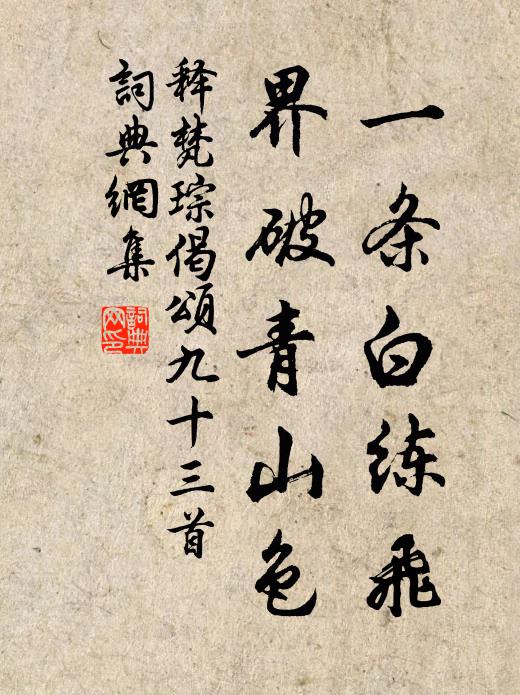 一条白练飛
界破青山色
释梵琮偈頌九十三首
詞典網集
詞典网印